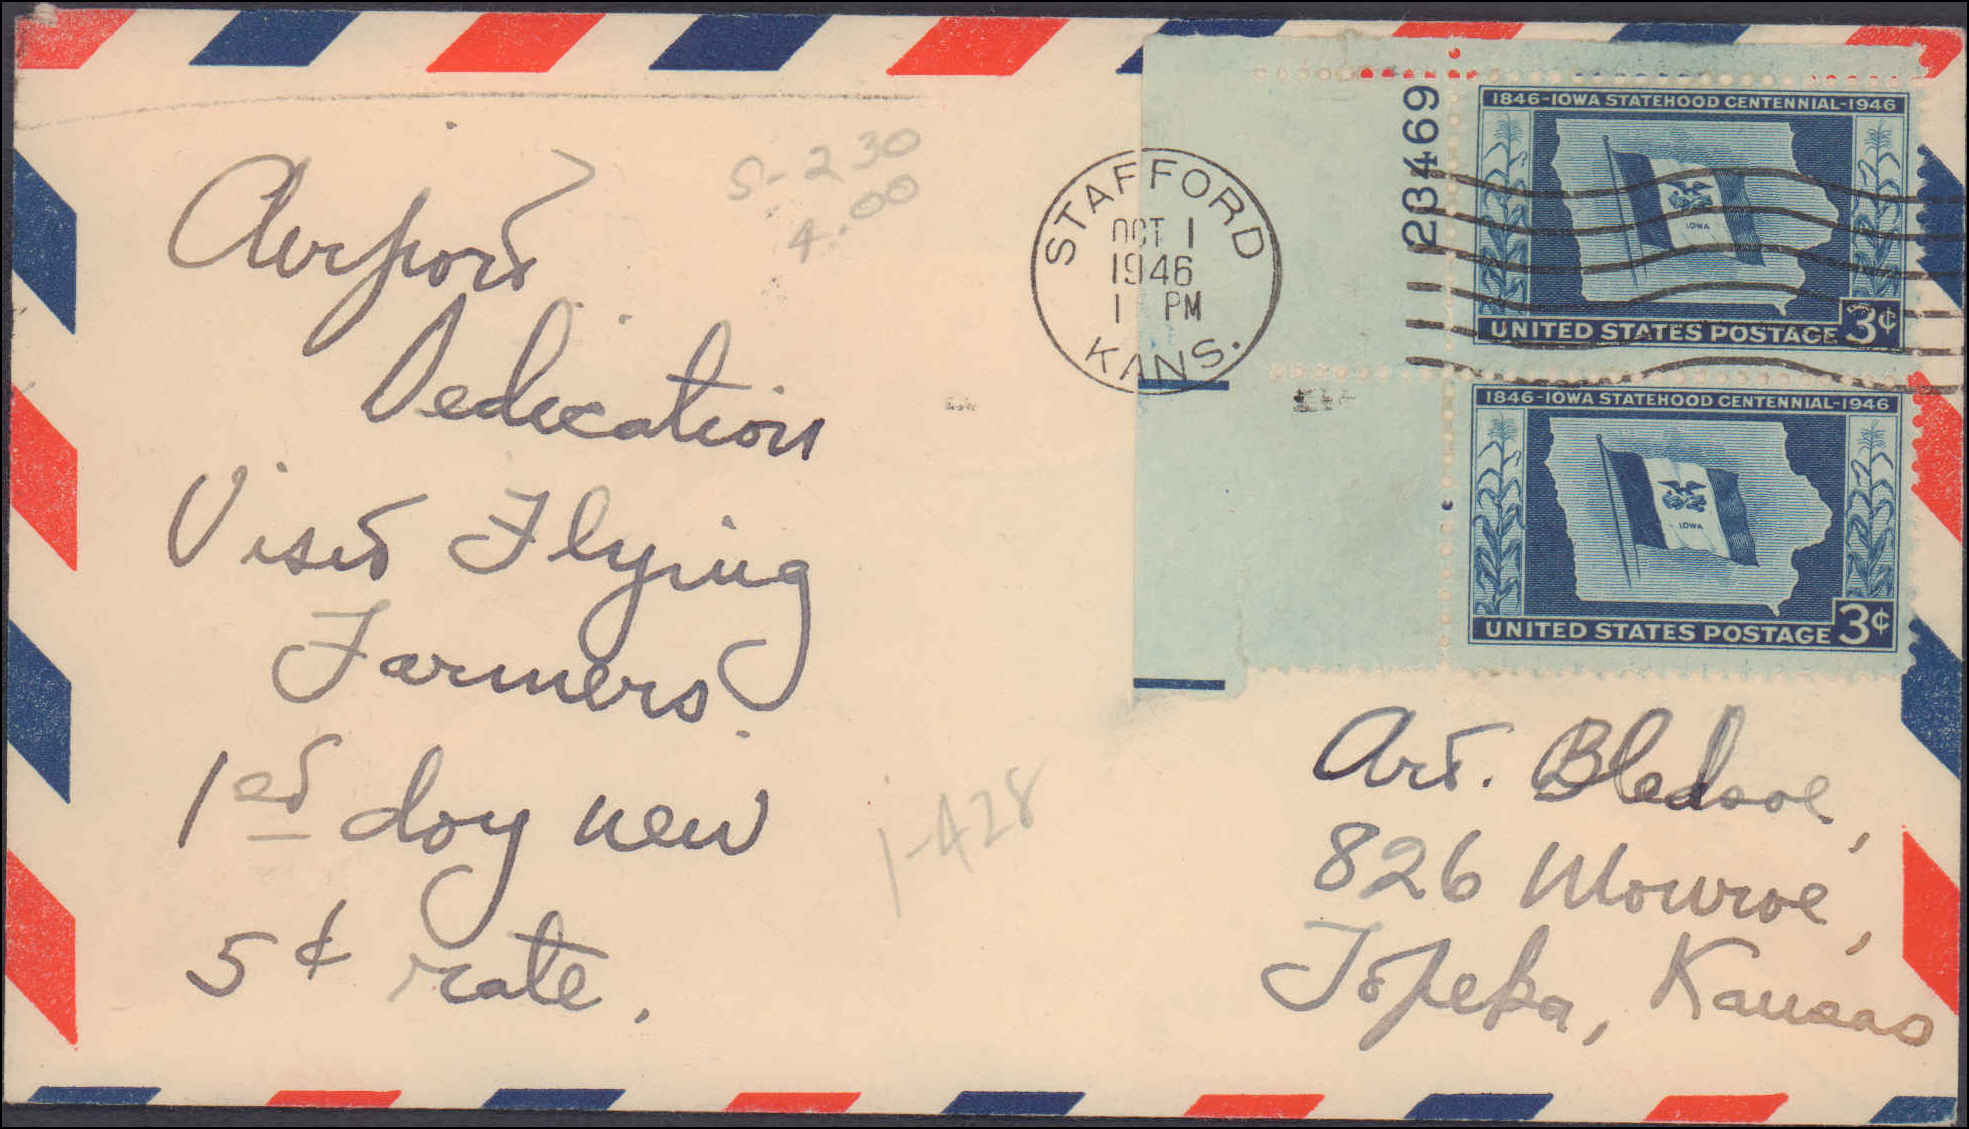 Airport
Dedication
Visit Flying
Farmers.
1st day new
5¢ rate.
S-230
4.00
1-428
STAFFORD
OCT 1
1946
1 PM
KANS.
23469
1846-IOWA STATEHOOD CENTENNIAL-1946
IOWA
UNITED STATES POSTAGE 3¢
1846-IOWA STATEHOOD CENTENNIAL-1946
IOWA
UNITED STATES POSTAGE 3¢
Art. Bledsoe,
826 Monroe,
Topeka, Kansas